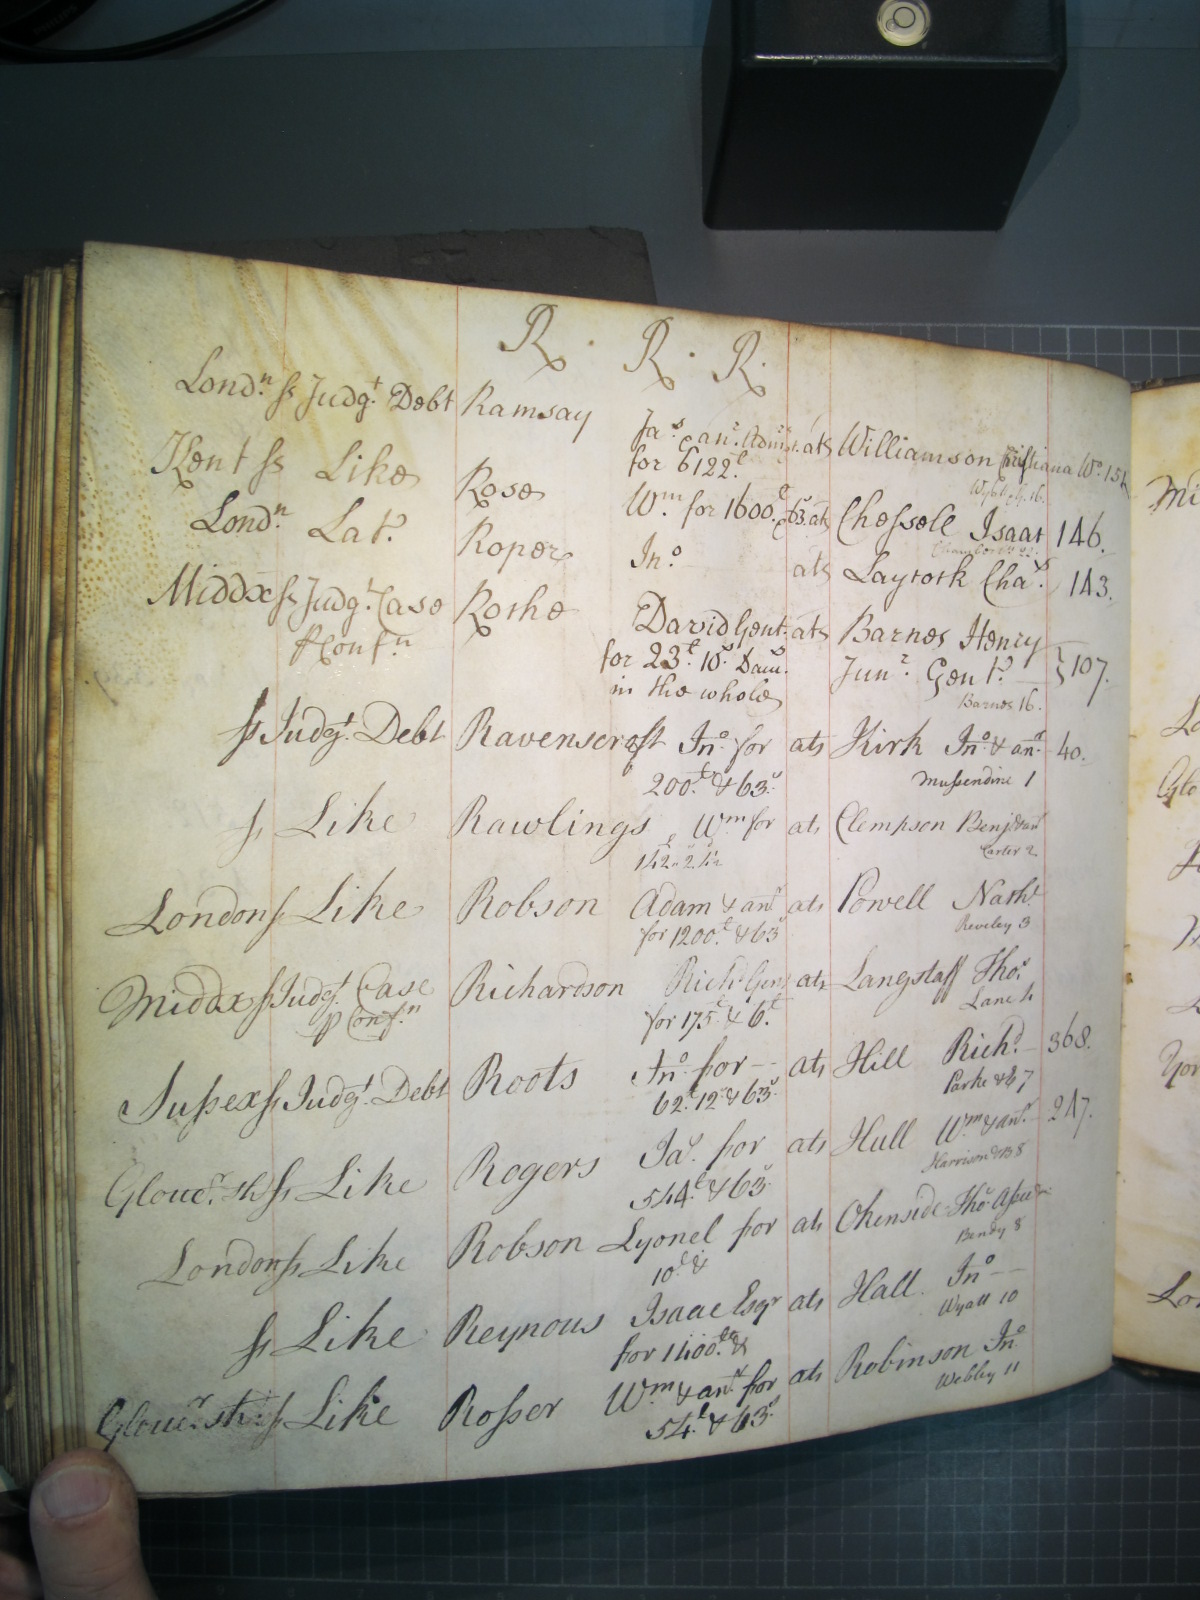 R. R. R.
Lond:n ss Judg:t Debt Ramsay Ja:s & an:r Adm:rs ats Williamson Christiana W:o 154
for 6122£
Kent ss Like Rose W:m for 1600£ & 63s ats Chessele Isaac 146.
Lond:n Lat:t Roper Jn:o ats Laycock Cha:s 143.
Middx ss Judg:t Case Roche David Gent. ats Barnes Henry
P Conf:n for 23£ 10s Dam. Jun:r Gen:t 107.
in the whole Barnes 16.
ss Judg:t Debt Ravenscroft Jn:o for ats Kirk Jn:o & an:r 40.
200£ & 63s Mussendine 1
ss Like Rawlings Wm for ats Clempson Benj & an:r
142 " 2 Carter 2
London ss Like Robson Adam & an:r ats Powell Nath:l
for 1200£ & 63s Reveley 3
Middx ss Judg:t Case Richardson Rich:d Gen:t ats Langstaff Tho:s
P Conf:n for 175£ & 6£ Lane 4
Sussex ss Judg:t Debt Roots Jn:o for ats Hill Rich:d 368.
62£ 12 & 63s Parke & B 7
Glouc:r sh ss Like Rogers Ja:s for ats Hull Wm & an:r 247.
544£ & 63s Harrison & B 8
London ss Like Robson Lyonel for ats Okenside Tho:s
10£ & Bendy 8
ss Like Reynous Isaac Esq:r ats Hall Jn:o
for 1400£ & Wyatt 10
Glouc:r sh ss Like Rosser Wm & an:r for ats Robinson Jn:o
54£ & 63s Webley 11